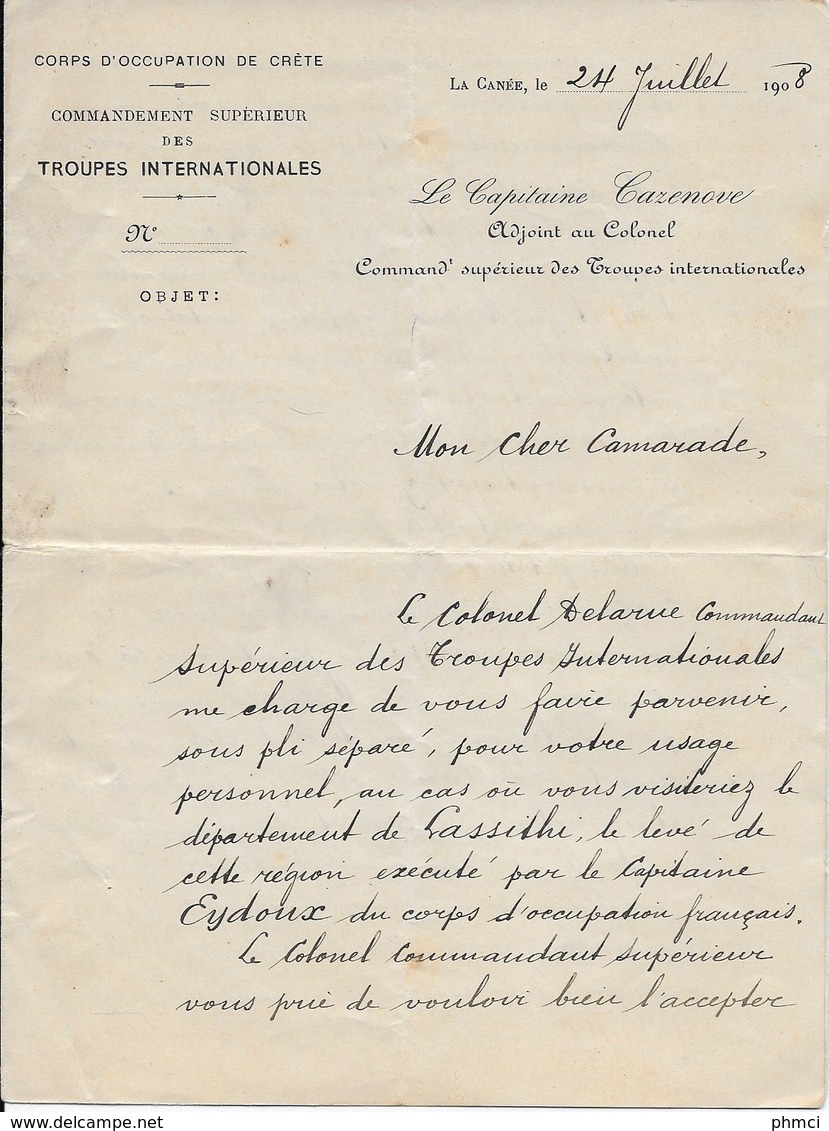 CORPS D'OCCUPATION DE CRÈTE
COMMANDEMENT SUPÉRIEUR
DES
TROUPES INTERNATIONALES
Nº
OBJET:
LA CANÉE, le 24 Juillet 1908
Le Capitaine Cazenove
Adjoint au Colonel
Commandt supérieur des Troupes internationales
Mon Cher Camarade,
Le Colonel Delarue Commandant
Supérieur des Troupes Internationales
me charge de vous faire parvenir,
sous pli séparé, pour votre usage
personnel, au cas où vous visiteriez le
département de Lassithi, le levé de
cette région exécuté par le Capitaine
Eydoux du corps d'occupation français.
Le Colonel Commandant Supérieur
vous prie de vouloir bien l'accepter
www.delcampe.net
phmci